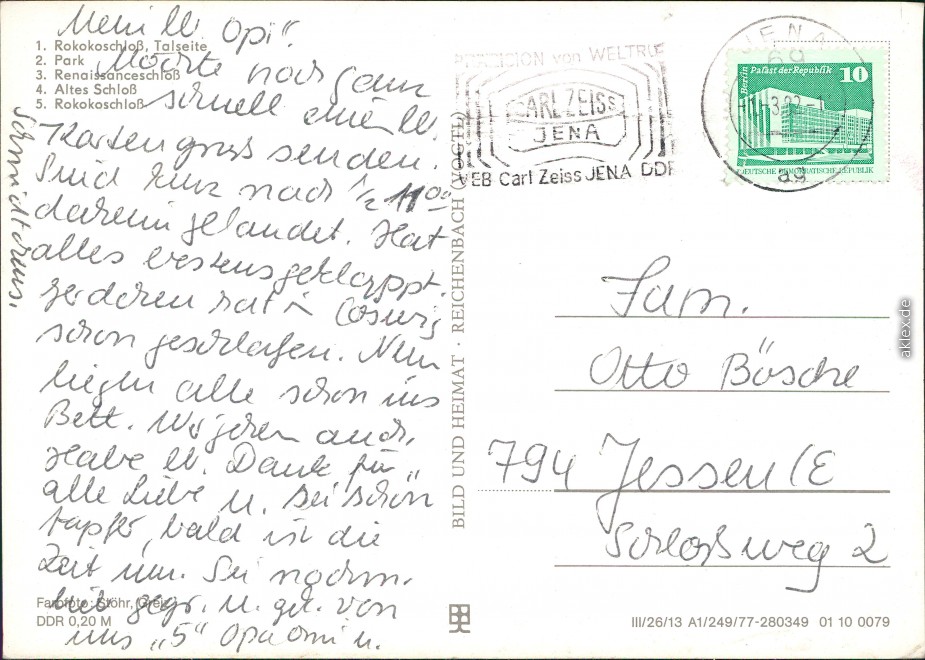 Mein lb. Opi".
1. Rokokoschloß, Talseite
2. Park
3. Renaissanceschloß
4. Altes Schloß
5. Rokokoschloß
Möchte noch ganz
schnell einen lb.
Kartengruß senden.
Sind kurz nach 1/2 11 00
daheim gelandet. Hat
alles bestens geklappt.
hat in Coswig
schon geschlafen. Nun
liegen alle schon ins
Bett. Wir gehen auch.
Habe lb. Dank für
alle Liebe u. sei schön
tapfer, bald ist die
Zeit um. Sei nochm.
lieb gegr. u. gek. von
uns „5" Opa Omi u.
Farbfoto: Stöhr, Greiz
DDR 0,20 M
BILD UND HEIMAT · REICHENBACH (VOGTL)
PRÄZISION von WELTRUF
CARL ZEISS
JENA
VEB Carl Zeiss JENA DDR
JENA
69
ag
Berlin Palast der Republik 10
DEUTSCHE DEMOKRATISCHE REPUBLIK
Fam.
Otto Bösche
794 Jessen/E
Schloßweg 2
III/26/13 A1/249/77-280349 01 10 0079
aklex.de